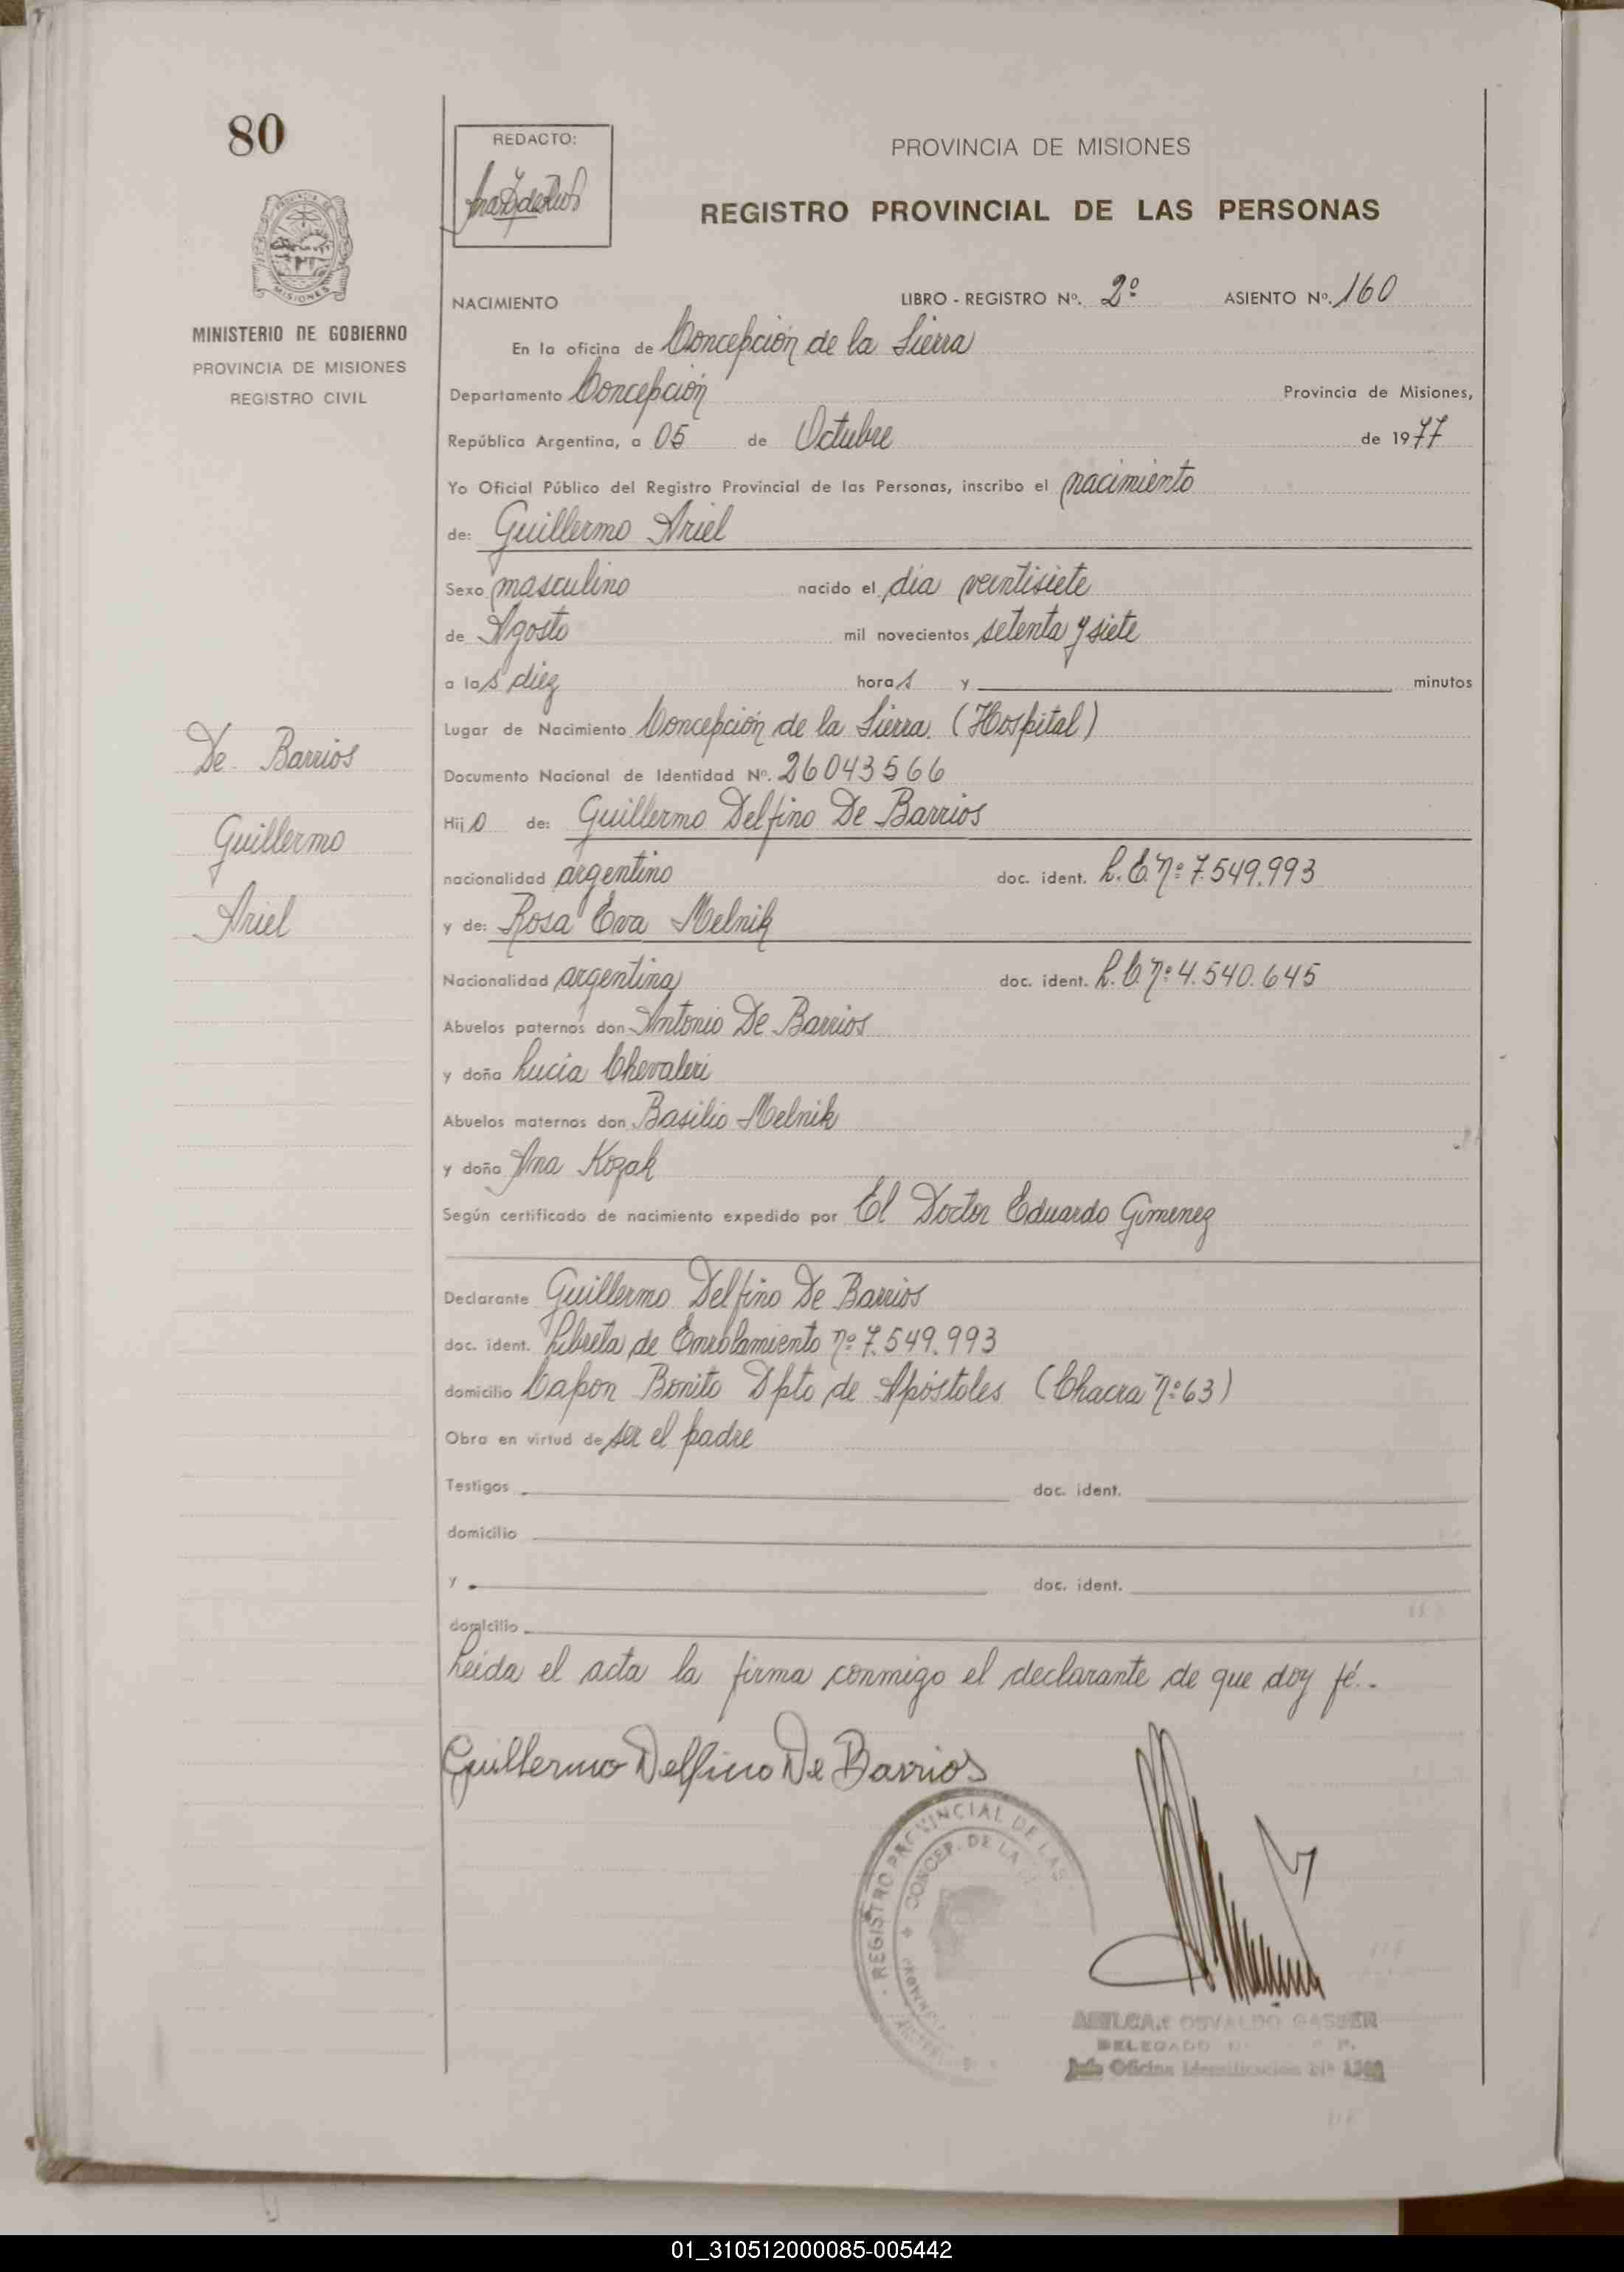 80
REDACTO:
PROVINCIA DE MISIONES
REGISTRO PROVINCIAL DE LAS PERSONAS
MISIONES
MINISTERIO DE GOBIERNO
PROVINCIA DE MISIONES
REGISTRO CIVIL
NACIMIENTO LIBRO - REGISTRO Nº. 2º ASIENTO Nº. 160
En la oficina de Concepción de la Sierra
Departamento Concepción Provincia de Misiones,
República Argentina, a 05 de Octubre de 1977
Yo Oficial Público del Registro Provincial de las Personas, inscribo el nacimiento
de: Guillermo Ariel
Sexo masculino nacido el día veintisiete
de Agosto mil novecientos setenta y siete
a las diez horas y minutos
Lugar de Nacimiento Concepción de la Sierra. (Hospital)
De Barrios
Guillermo
Ariel
Documento Nacional de Identidad Nº. 26043566
Hijo de: Guillermo Delfino De Barrios
nacionalidad argentino doc. ident. L. E. nº 7.549.993
y de: Rosa Eva Melnik
Nacionalidad argentina doc. ident. L. C. nº 4.540.645
Abuelos paternos don Antonio De Barrios
y doña Lucia Chevaleri
Abuelos maternos don Basilio Melnik
y doña Ana Kozak
Según certificado de nacimiento expedido por El Doctor Eduardo Gimenez
Declarante Guillermo Delfino De Barrios
doc. ident. Libreta de Enrolamiento nº 7.549.993
domicilio Capon Bonito Dpto de Apóstoles (Chacra nº 63)
Obra en virtud de ser el padre
Testigos doc. ident.
domicilio
y doc. ident.
domicilio
Leida el acta la firma conmigo el declarante de que doy fé.-
Guillermo Delfino De Barrios
REGISTRO PROVINCIAL DE LAS
CONCEP. DE LA
OSVALDO GASSER
DELEGADO
Jefe Oficina Identificacion Nº
01_310512000085-005442